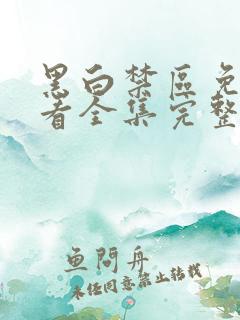 黑白禁区免
看全集完整
鱼問舟
未经同意禁止转载